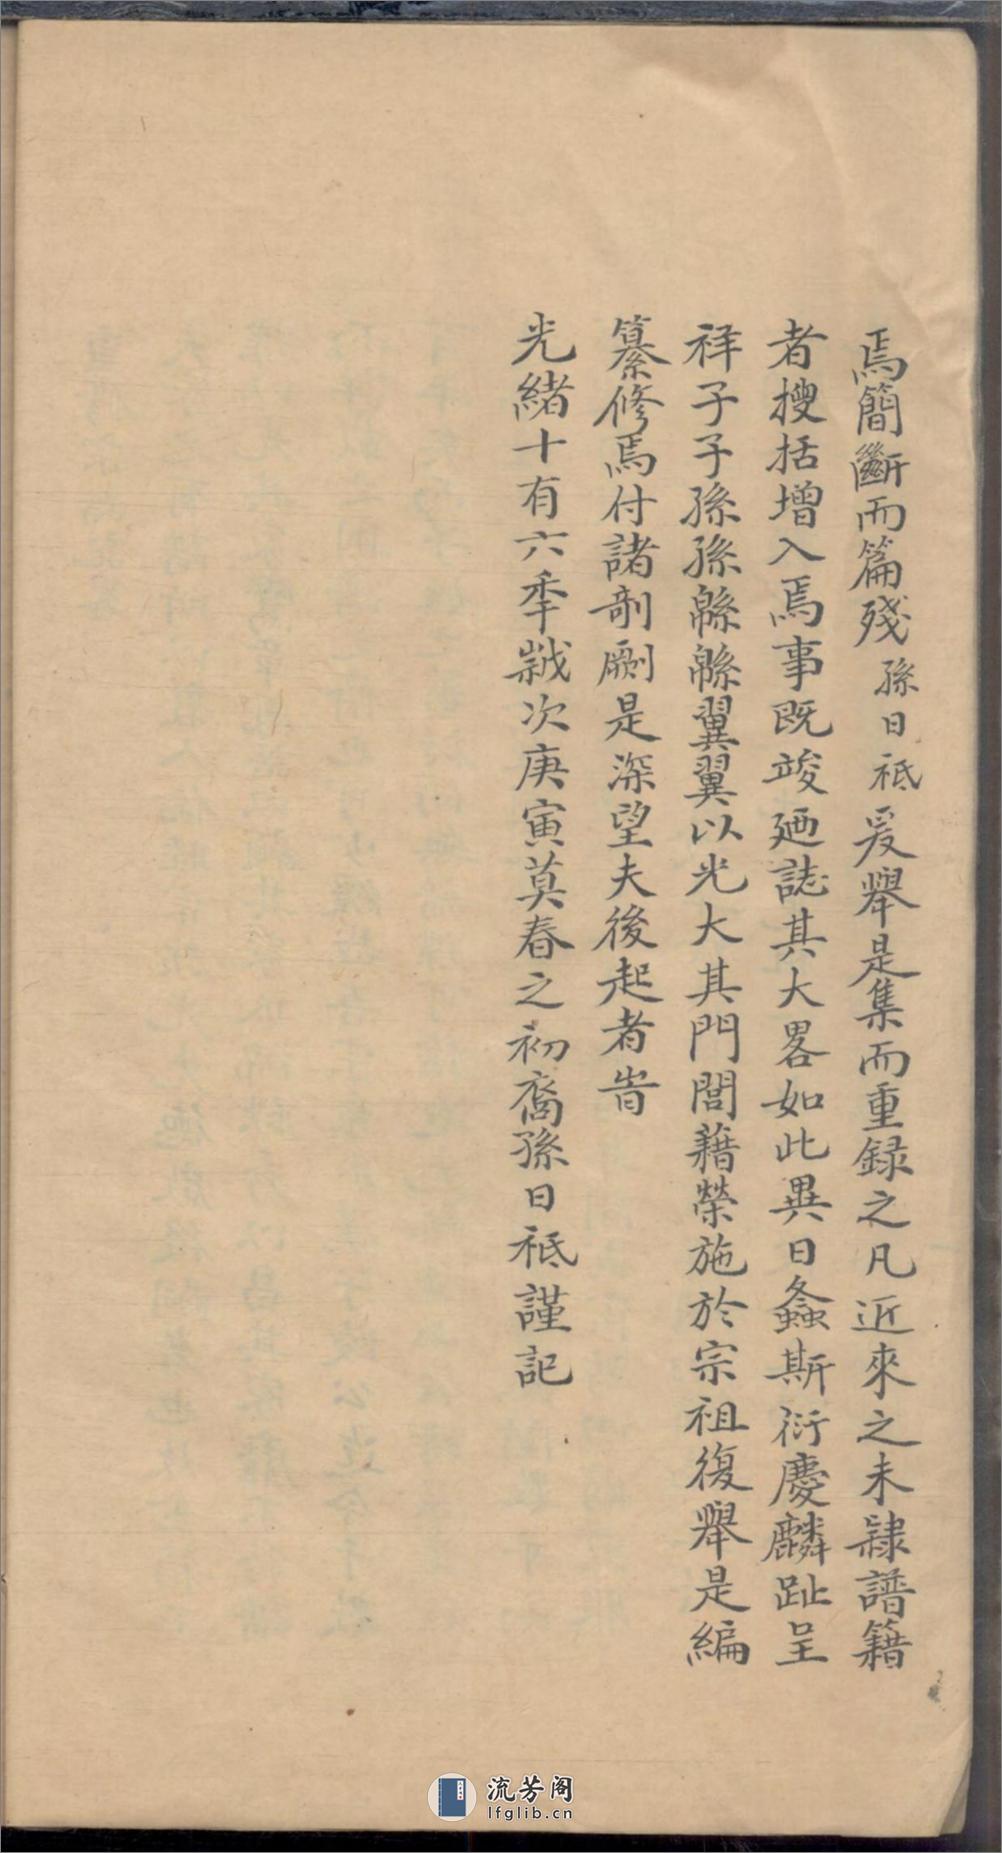 焉簡斷而篇殘孫日祗爰舉是集而重録之凡近來之未隸譜籍
者搜括增入焉事既竣廼誌其大畧如此異日螽斯衍慶麟趾呈
祥子子孫孫緜緜翼翼以光大其門閭藉榮施於宗祖復舉是編
纂修焉付諸剞劂是深望夫後起者旹
光緒十有六季歲次庚寅莫春之初裔孫日祗謹記
流芳阁
lfglib.cn